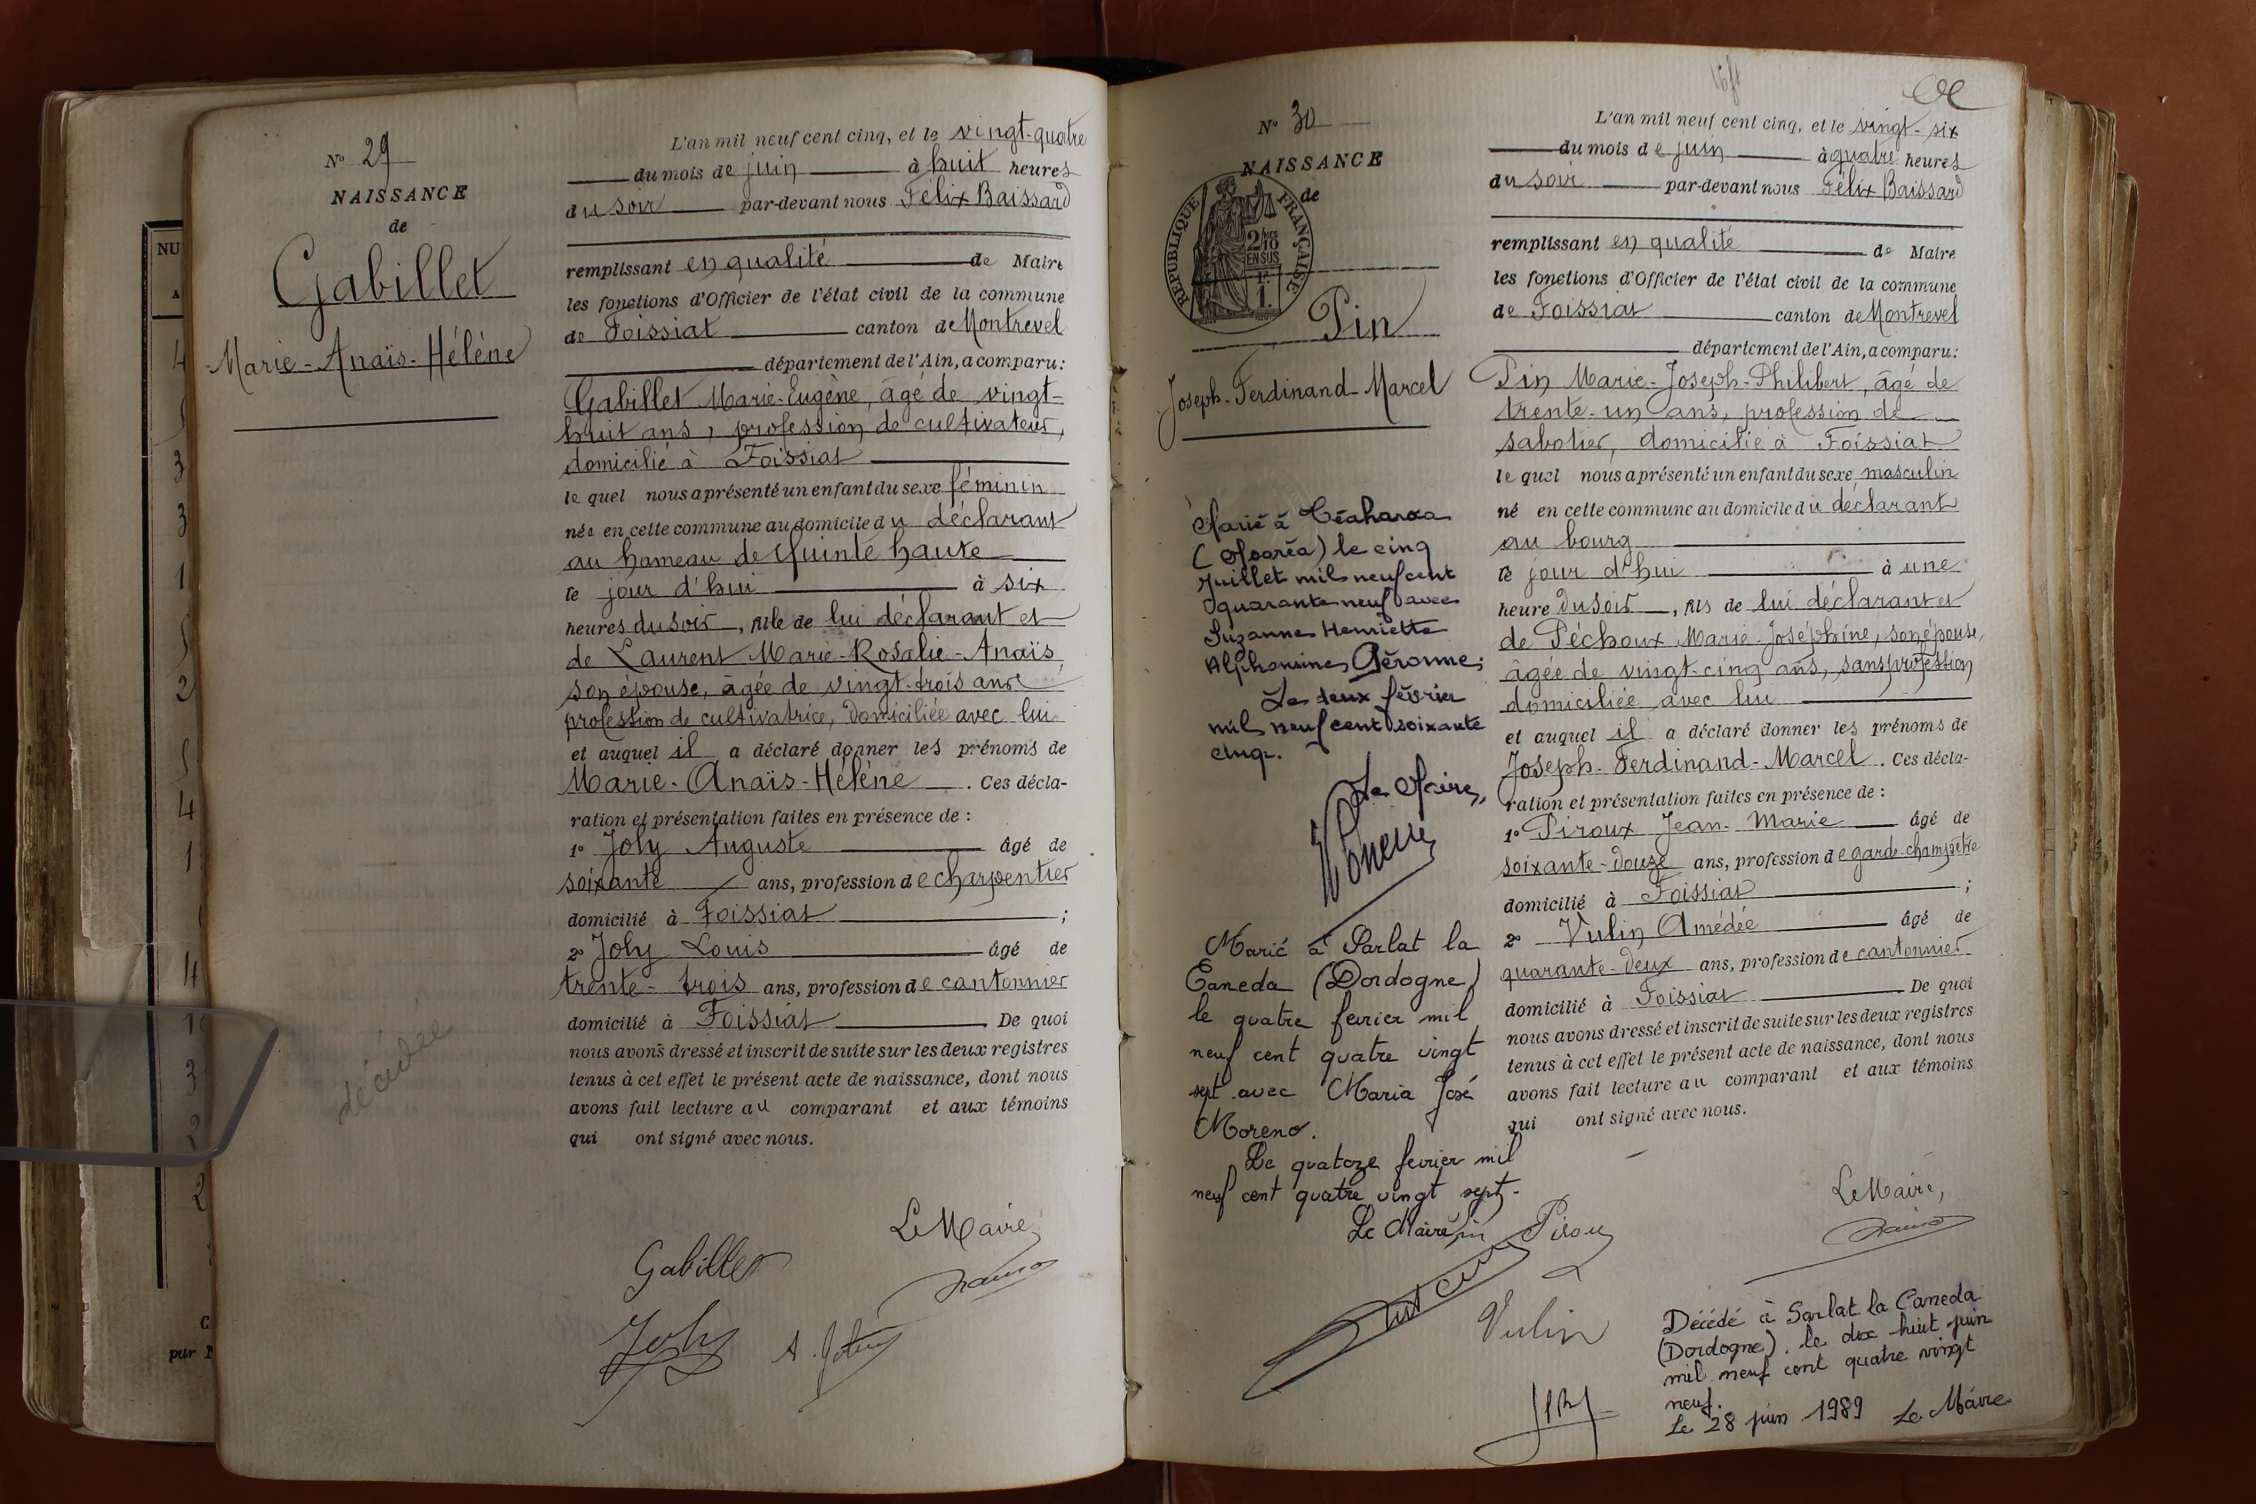 NU
4
3
3
1
2
4
1
4
1
3
2
2
par
N° 29
NAISSANCE
de
Gabillet
Marie-Anaïs-Hélène
décédée
L'an mil neuf cent cinq, et le vingt-quatre
du mois de juin à huit heures
du soir par-devant nous Félix Baissard
remplissant en qualité de Maire
les fonctions d'Officier de l'état civil de la commune
de Foissiat canton de Montrevel
département de l'Ain, a comparu:
Gabillet Marie-Eugène, âgé de vingt-
huit ans, profession de cultivateur,
domicilié à Foissiat
le quel nous a présenté un enfant du sexe féminin
née en cette commune au domicile du déclarant
au hameau de Quinte haute
le jour d'hui à six
heures du soir, fille de lui déclarant et
de Laurent Marie-Rosalie-Anaïs,
son épouse, âgée de vingt-trois ans
profession de cultivatrice, domiciliée avec lui
et auquel il a déclaré donner les prénoms de
Marie-Anaïs-Hélène. Ces décla-
ration et présentation faites en présence de :
1° Joly Auguste âgé de
soixante ans, profession de charpentier
domicilié à Foissiat ;
2° Joly Louis âgé de
trente-trois ans, profession de cantonnier
domicilié à Foissiat. De quoi
nous avons dressé et inscrit de suite sur les deux registres
tenus à cet effet le présent acte de naissance, dont nous
avons fait lecture au comparant et aux témoins
qui ont signé avec nous.
Le Maire,
Gabillet
Joly
N° 30
NAISSANCE
de
RÉPUBLIQUE FRANÇAISE
2/10
EN SUS
1.
Pin
Joseph-Ferdinand-Marcel
Marié à Téaharoa
(Mooréa) le cinq
Juillet mil neuf cent
quarante neuf avec
Suzanne Henriette
Alphonsine Géronne.
Le deux février
mil neuf cent soixante
cinq.
Le Maire,
Marié à Sarlat la
Caneda (Dordogne)
le quatre fevrier mil
neuf cent quatre vingt
sept avec Maria José
Moreno.
Le quatorze fevrier mil
neuf cent quatre vingt sept.
Le Maire
L'an mil neuf cent cinq, et le vingt-six
du mois de juin à quatre heures
du soir par-devant nous Félix Baissard
remplissant en qualité de Maire
les fonctions d'Officier de l'état civil de la commune
de Foissiat canton de Montrevel
département de l'Ain, a comparu:
Pin Marie-Joseph-Philibert, âgé de
trente-un ans, profession de
sabotier, domicilié à Foissiat
le quel nous a présenté un enfant du sexe masculin
né en cette commune au domicile du déclarant
au bourg
le jour d'hui à une
heure du soir, fils de lui déclarant et
de Péchoux Marie-Joséphine, son épouse,
âgée de vingt-cinq ans, sans profession
domiciliée avec lui
et auquel il a déclaré donner les prénoms de
Joseph-Ferdinand-Marcel. Ces décla-
ration et présentation faites en présence de :
1° Piroux Jean-Marie âgé de
soixante-douze ans, profession de garde-champêtre
domicilié à Foissiat ;
2° Vulin Amédée âgé de
quarante-deux ans, profession de cantonnier
domicilié à Foissiat. De quoi
nous avons dressé et inscrit de suite sur les deux registres
tenus à cet effet le présent acte de naissance, dont nous
avons fait lecture au comparant et aux témoins
qui ont signé avec nous.
Le Maire,
Pin
Piroux
Vulin
Décédé à Sarlat la Caneda
(Dordogne). le dix huit juin
mil neuf cent quatre vingt
neuf.
Le 28 juin 1989 Le Maire